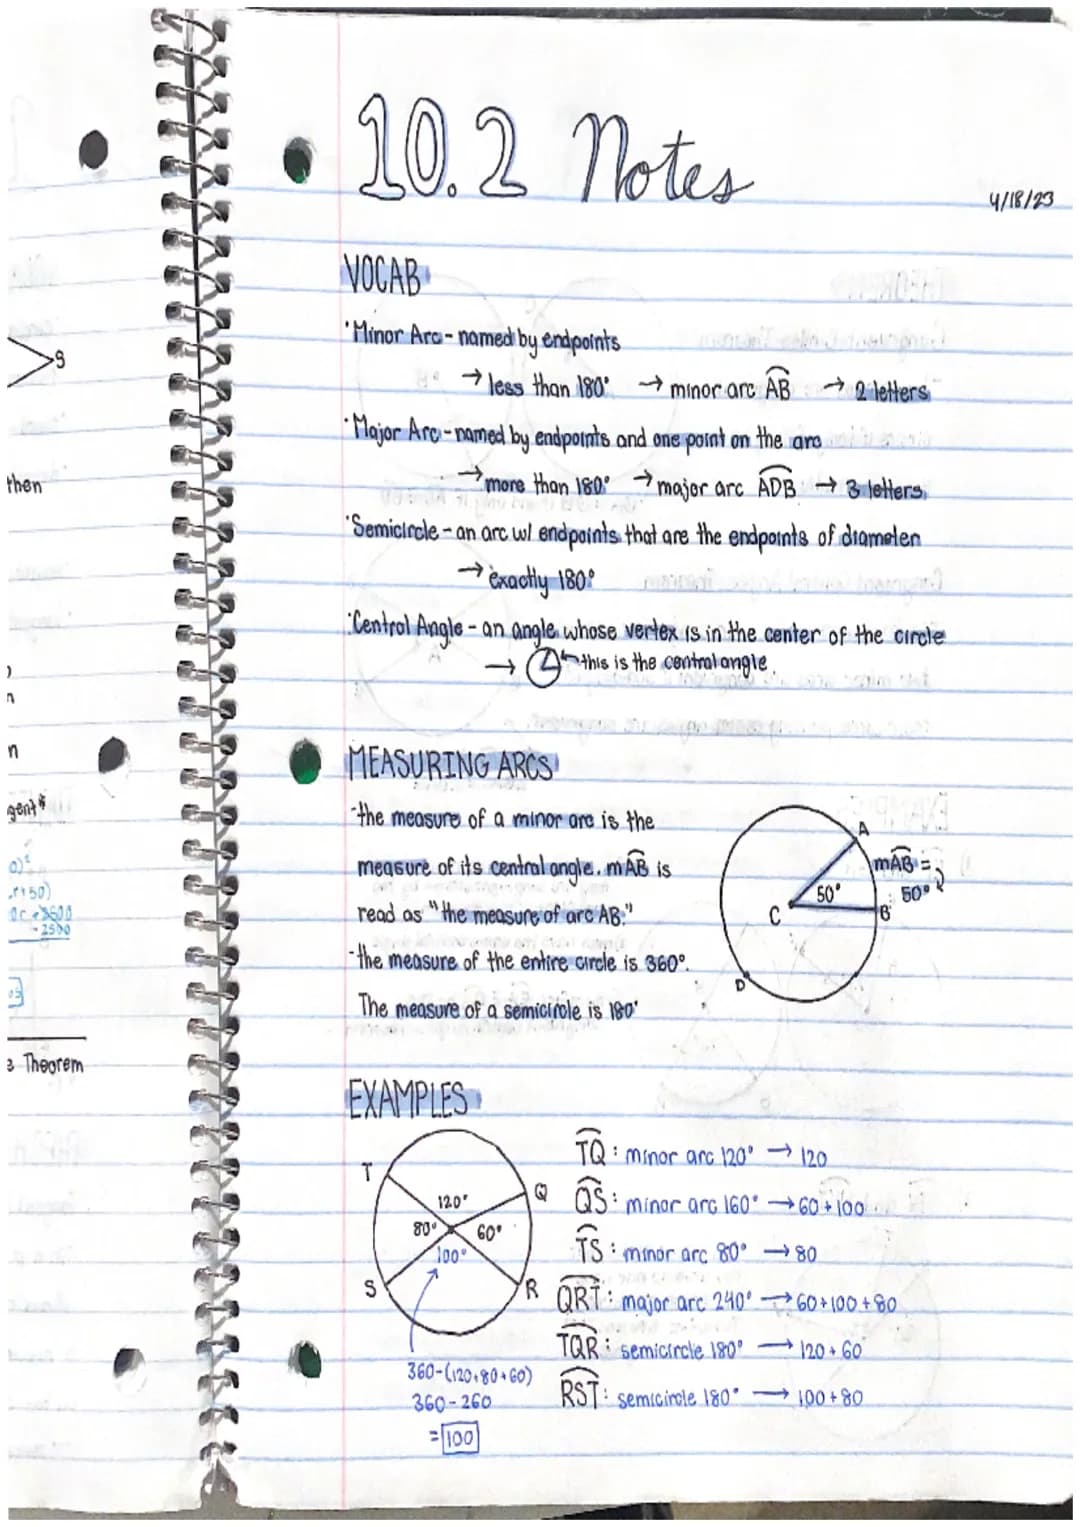 10.2 Notes
4/18/23
VOCAB
·Minor Arc - named by endpoints
→ less than 180° → minor arc AB → 2 letters
·Major Arc - named by endpoints and one point on the arc
→ more than 180° → major arc ADB → 3 letters
·Semicircle - an arc w/ endpoints that are the endpoints of diameter
→ exactly 180°
·Central Angle - an angle whose vertex is in the center of the circle
→ this is the central angle
MEASURING ARCS
-the measure of a minor arc is the
measure of its central angle. mAB is
read as "the measure of arc AB."
-the measure of the entire circle is 360°.
The measure of a semicircle is 180°
A
mAB =
50°
50°
C
B
D
EXAMPLES
T
Q
120°
80°
60°
100°
S
R
360-(120+80+60)
360-260
=100
TQ: minor arc 120° → 120
QS: minor arc 160° → 60+100
TS: minor arc 80° → 80
QRT: major arc 240° → 60+100+80
TQR: semicircle 180° → 120+60
RST: semicircle 180° → 100+80
S
then
n
gent*
Theorem